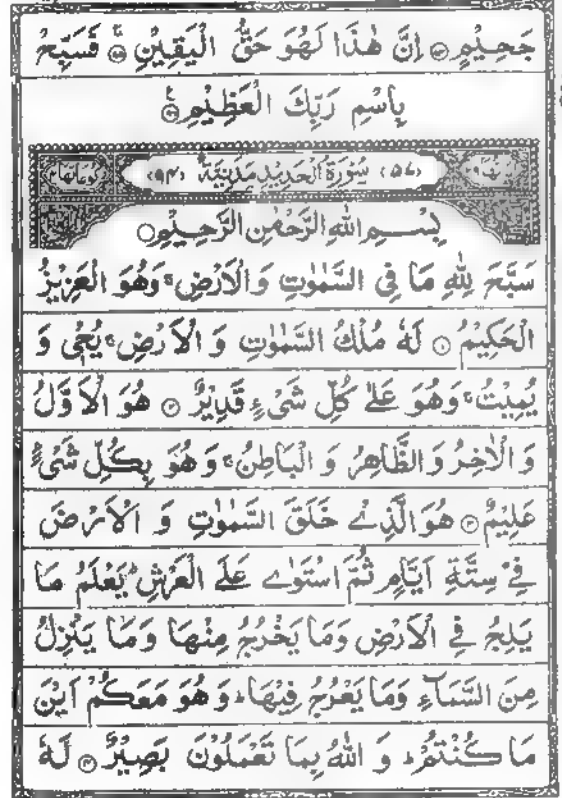 جَحِيْمٍ ۝۹۴ اِنَّ هٰذَا لَهُوَ حَقُّ الْيَقِيْنِ ۝۹۵ فَسَبِّحْ
بِاسْمِ رَبِّكَ الْعَظِيْمِ ۝۹۶
(۵۷) سُوْرَةُ الْحَدِيْدِ مَدَنِيَّةٌ (۹۴)
بِسْمِ اللّٰهِ الرَّحْمٰنِ الرَّحِيْمِ ۝
سَبَّحَ لِلّٰهِ مَا فِي السَّمٰوٰتِ وَالْاَرْضِ ۚ وَهُوَ الْعَزِيْزُ
الْحَكِيْمُ ۝۱ لَهٗ مُلْكُ السَّمٰوٰتِ وَ الْاَرْضِ ۚ يُحْيٖ وَ
يُمِيْتُ ۚ وَهُوَ عَلٰى كُلِّ شَىْءٍ قَدِيْرٌ ۝۲ هُوَ الْاَوَّلُ
وَ الْاٰخِرُ وَ الظَّاهِرُ وَ الْبَاطِنُ ۚ وَ هُوَ بِكُلِّ شَىْءٍ
عَلِيْمٌ ۝۳ هُوَ الَّذِيْ خَلَقَ السَّمٰوٰتِ وَ الْاَرْضَ
فِيْ سِتَّةِ اَيَّامٍ ثُمَّ اسْتَوٰى عَلَى الْعَرْشِ ؕ يَعْلَمُ مَا
يَلِجُ فِي الْاَرْضِ وَمَا يَخْرُجُ مِنْهَا وَمَا يَنْزِلُ
مِنَ السَّمَآءِ وَمَا يَعْرُجُ فِيْهَا ؕ وَ هُوَ مَعَكُمْ اَيْنَ
مَا كُنْتُمْ ؕ وَ اللّٰهُ بِمَا تَعْمَلُوْنَ بَصِيْرٌ ۝۴ لَهٗ